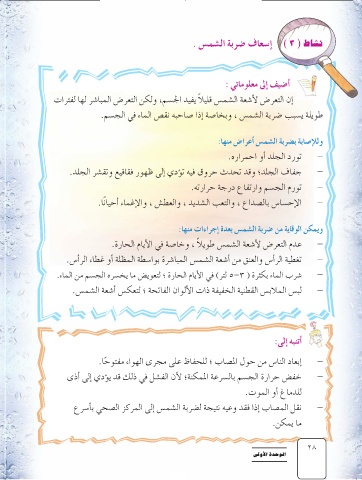 نشاط ( ٣ ) إسعاف ضربة الشمس .
أضيف إلى معلوماتي :
إن التعرض لأشعة الشمس قليلاً يفيد الجسم، ولكن التعرض المباشر لها لفترات
طويلة يسبب ضربة الشمس ، وبخاصة إذا صاحبه نقص الماء في الجسم.
وللإصابة بضربة الشمس أعراض منها:
– تورد الجلد أو احمراره.
– جفاف الجلد؛ وقد تحدث حروق فيه تؤدي إلى ظهور فقاقيع وتقشر الجلد.
– تورم الجسم وارتفاع درجة حرارته.
– الإحساس بالصداع ، والتعب الشديد ، والعطش ، والإغماء أحيانًا.
ويمكن الوقاية من ضربة الشمس بعدة إجراءات منها:
– عدم التعرض لأشعة الشمس طويلاً ، وخاصة في الأيام الحارة.
– تغطية الرأس والعنق من أشعة الشمس المباشرة بواسطة المظلة أو غطاء الرأس.
– شرب الماء بكثرة ( ٣-٥ لتر) في الأيام الحارة ؛ لتعويض ما يخسره الجسم من الماء.
– لبس الملابس القطنية الخفيفة ذات الألوان الفاتحة ؛ لتعكس أشعة الشمس.
أنتبه إلى:
– إبعاد الناس من حول المصاب ؛ للحفاظ على مجرى الهواء مفتوحًا.
– خفض حرارة الجسم بالسرعة الممكنة؛ لأن الفشل في ذلك قد يؤدي إلى أذى
للدماغ أو الموت.
– نقل المصاب إذا فقد وعيه نتيجة لضربة الشمس إلى المركز الصحي بأسرع
ما يمكن.
٢٨
الوحدة الأولى